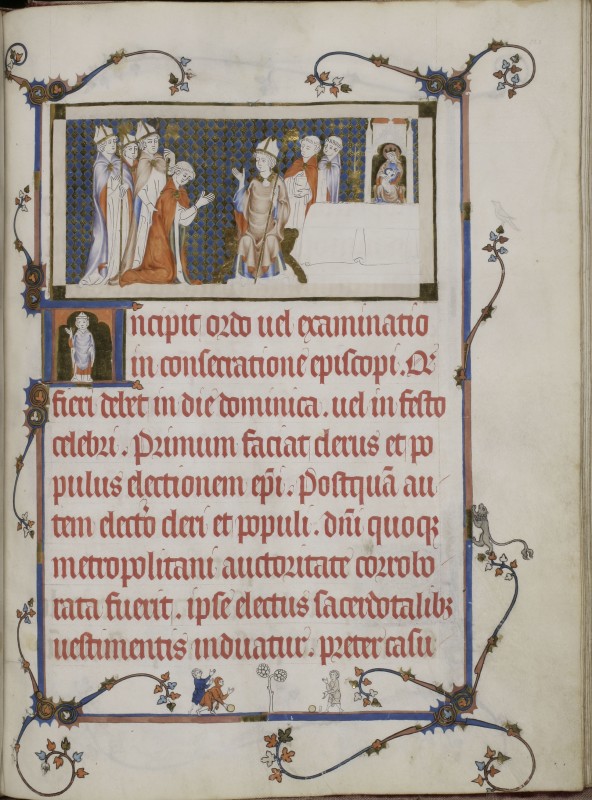 Incipit ordo uel examinatio
in consecratione episcopi. Qr
fieri debet in die dominica. uel in festo
celebri. Primum faciat clerus et po
pulus electionem ep̄i. Postquā au
tem electō cleri et populi. dn̄i quoqꝫ
metropolitani auctoritate corrobo
rata fuerit. ipse electus sacerdotalibꝫ
uestimentis induatur. preter casu